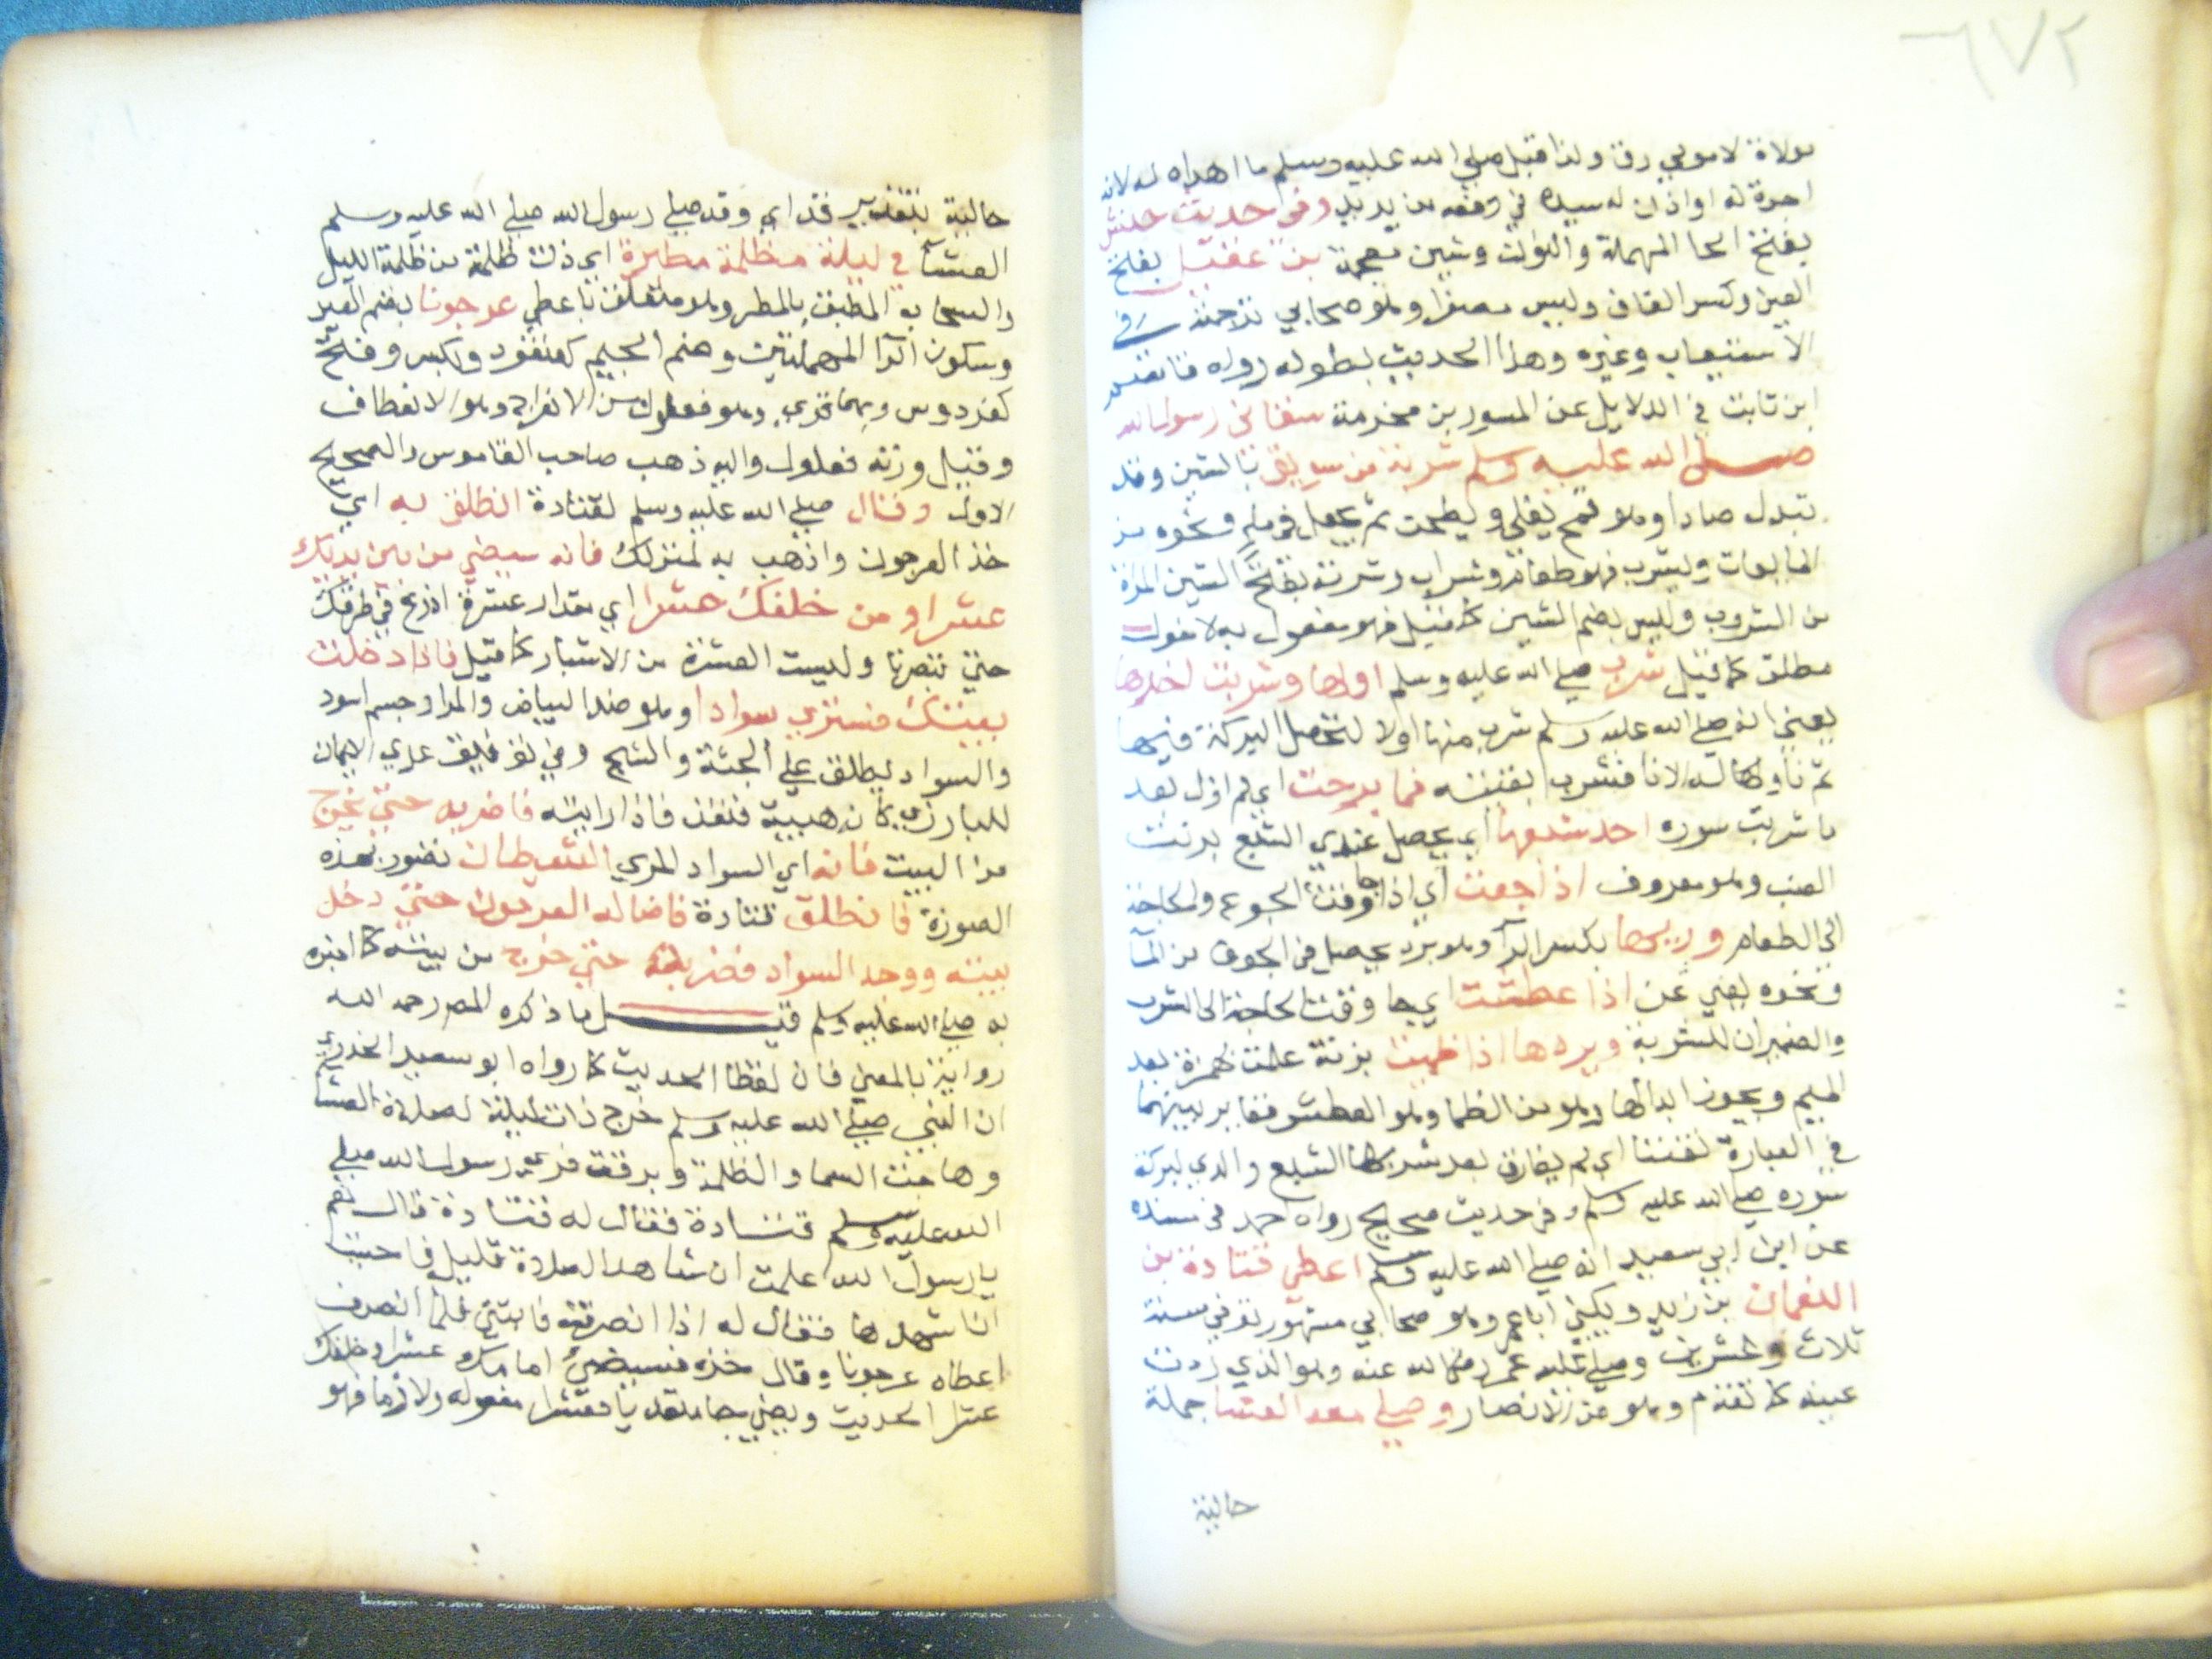 ٦٧٢
مولاة لا مولي رق ولذا قبل صلي الله عليه وسلم ما اهداه له لانه
اجرة له او اذن له سيده في دفعه لمن يريد وفي حديث حنش
بفتح الحا المهملة والنون وشين معجمة بن عقيل بفتح
العين وكسر القاف وليس مصغرا وهو صحابي ترجمته في
الاستيعاب وغيره وهذا الحديث بطوله رواه قاسم
ابن ثابت في الدلايل عن المسور بن مخرمة سقاني رسول الله
صلي الله عليه وسلم شربة من سويق بالسين وقد
تبدل صادا وهو قمح يقلي ويطحن ثم يجعل في ماء ونحوه من
المايعات ويشرب فهو طعام وشراب وشربة بفتح الشين المرة
من الشروب وليس بضم الشين كما قيل فهو مفعول به لا مفول
مطلق كما قيل شرب صلي الله عليه وسلم اولها وشربت اخرها
يعني انه صلي الله عليه وسلم شرب منها اولا لتحصل البركة فيها
ثم ناولها له الانا فشرب بقيته فما برحت اي لم ازل بعد
ما شربت سوره اجد شبعها اي يحصل عندي الشبع بزنت
العنب وهو معروف اذا جعت اي اذا جا وقت الجوع والحاجة
الي الطعام وريها بكسر الرا وهو برد يحصل في الجوف من الما
ونحوه يغني عن اذا عطشت اي جا وقت الحاجة الي الشرب
والضميران للشربة وبردها اذا ظميت بزنة علمت بهمزة بعد
الميم ويجوز ابدالها وهو من الظما وهو العطش فغاير بينهما
في العبارة تفننا اي لم يفارق بعد شربها الشبع والري لبركة
سوره صلي الله عليه وسلم وفي حديث صحيح رواه احمد في مسنده
عن ابن ابي سعيد انه صلي الله عليه وسلم اعطي قتادة بن
النعمان بن زيد ويكني ابا عمر وهو صحابي مشهور توفي سنة
ثلاث وعشرين وصلي عليه عمر رضي الله عنه وهو الذي ردت
عينه كما تقدم وهو من الانصار وصلي معه العشا جملة
حالية
حالية بتقدير قد اي وقد صلي رسول الله صلي الله عليه وسلم
العشا في ليلة مظلمة مطيرة اي ذات ظلمة من ظلمة الليل
والسحابه المطبق بالمطر وهو متعلق باعطي عرجونا بضم العين
وسكون الرا المهملتين وضم الجيم كعنقود وبكسر وفتح
كفردوس وبهما قري وهو فعلون من الانفراج وهو الانعطاف
وقيل وزنه فعلول واليه ذهب صاحب القاموس والصحيح
الاول وقال صلي الله عليه وسلم لقتادة انطلق به اي
خذ العرجون واذهب به لمنزلك فانه سيضي من بين يديك
عشرا ومن خلفك عشرا اي مقدار عشرة اذرع في طرقك
حتي تبصرها وليست العشرة من الاشبار كما قيل فاذا دخلت
بيتك فستري سوادا وهو ضد البياض والمراد جسم اسود
والسواد يطلق علي الجثة والشبح وفي توفيق عري الايمان
للبارزي كان هيية قنفذ فاذا رايته فاضربه حتي يخرج
من البيت فانه اي السواد المري الشيطان تصور بهذه
الصورة فانطلق قتادة فاضاله العرجون حتي دخل
بيته ووجد السواد فضربه حتي خرج من بيته كما اخبره
به صلي الله عليه وسلم قيل ما ذكره المص رحمه الله
رواية بالمعني فان لفظ الحديث كما رواه ابو سعيد الخدري
ان النبي صلي الله عليه وسلم خرج ذات ليلة لصلاة العشا
وهاجت السما والظلمة وبرقت فراي رسول الله صلي
الله عليه وسلم قتادة فقال له قتادة قال نعم
يا رسول الله علمت ان شاهد الصلاة قليل فاحببت
ان اشهدها فقال له اذا انصرفت فاتني فلما انصرف
اعطاه عرجونا وقال خذه فسيضئ امامك عشرا وخلفك
عشرا الحديث ويضي جا متعديا فعشرا مفعوله ولازما فهو